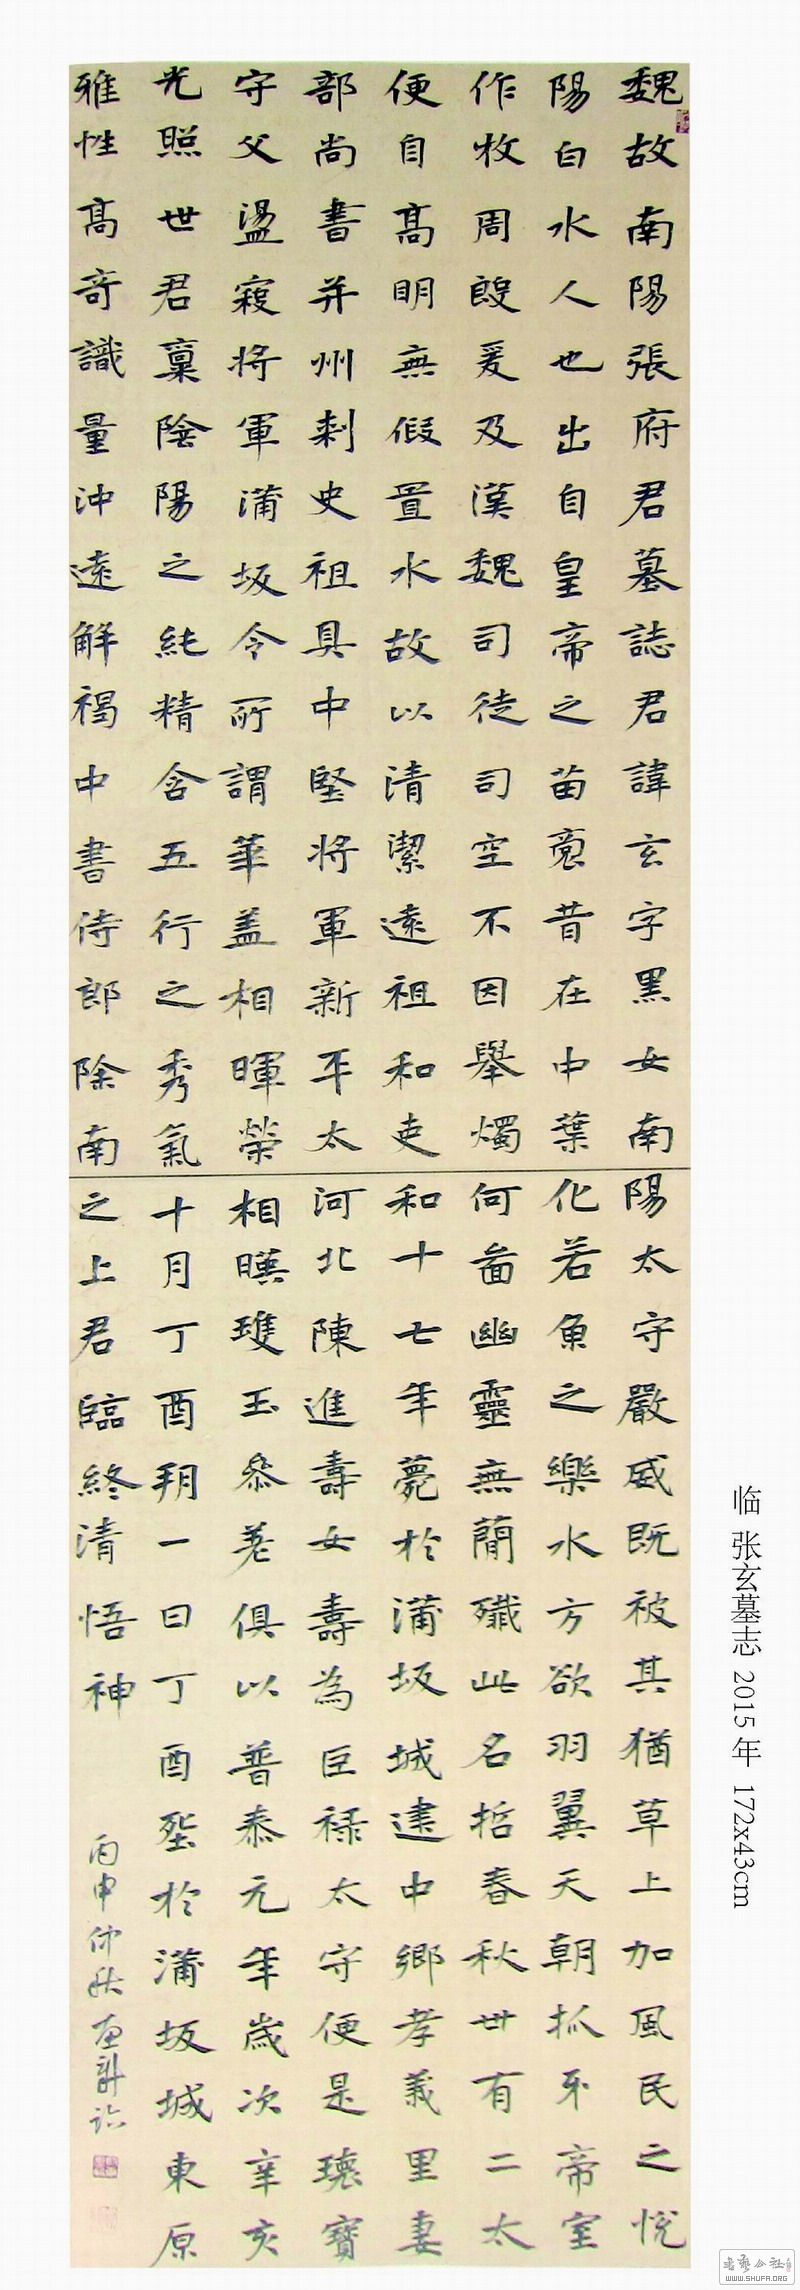 魏故南陽張府君墓誌君諱玄字黑女南
陽白水人也出自皇帝之苗裔昔在中葉
作牧周殷爰及漢魏司徒司空不因舉燭
便自高明無假置水故以清潔遠祖和吏
部尚書并州刺史祖具中堅將軍新平太
守父盪寇將軍蒲坂令所謂華蓋相暉榮
光照世君稟陰陽之純精含五行之秀氣
雅性高奇識量沖遠解褐中書侍郎除南
陽太守嚴威既被其猶草上加風民之悅
化若魚之樂水方欲羽翼天朝抓牙帝室
何啚幽靈無簡殲此名哲春秋卅有二太
和十七年薨於蒲坂城建中鄉孝義里妻
河北陳進壽女壽為巨祿太守便是瓌寶
相暎瓊玉參差俱以普泰元年歲次辛亥
十月丁酉朔一日丁酉塟於蒲坂城東原
之上君臨終清悟神
丙申仲秋
临 张玄墓志 2015年 172x43cm
书艺公社
WWW.SHUFA.ORG